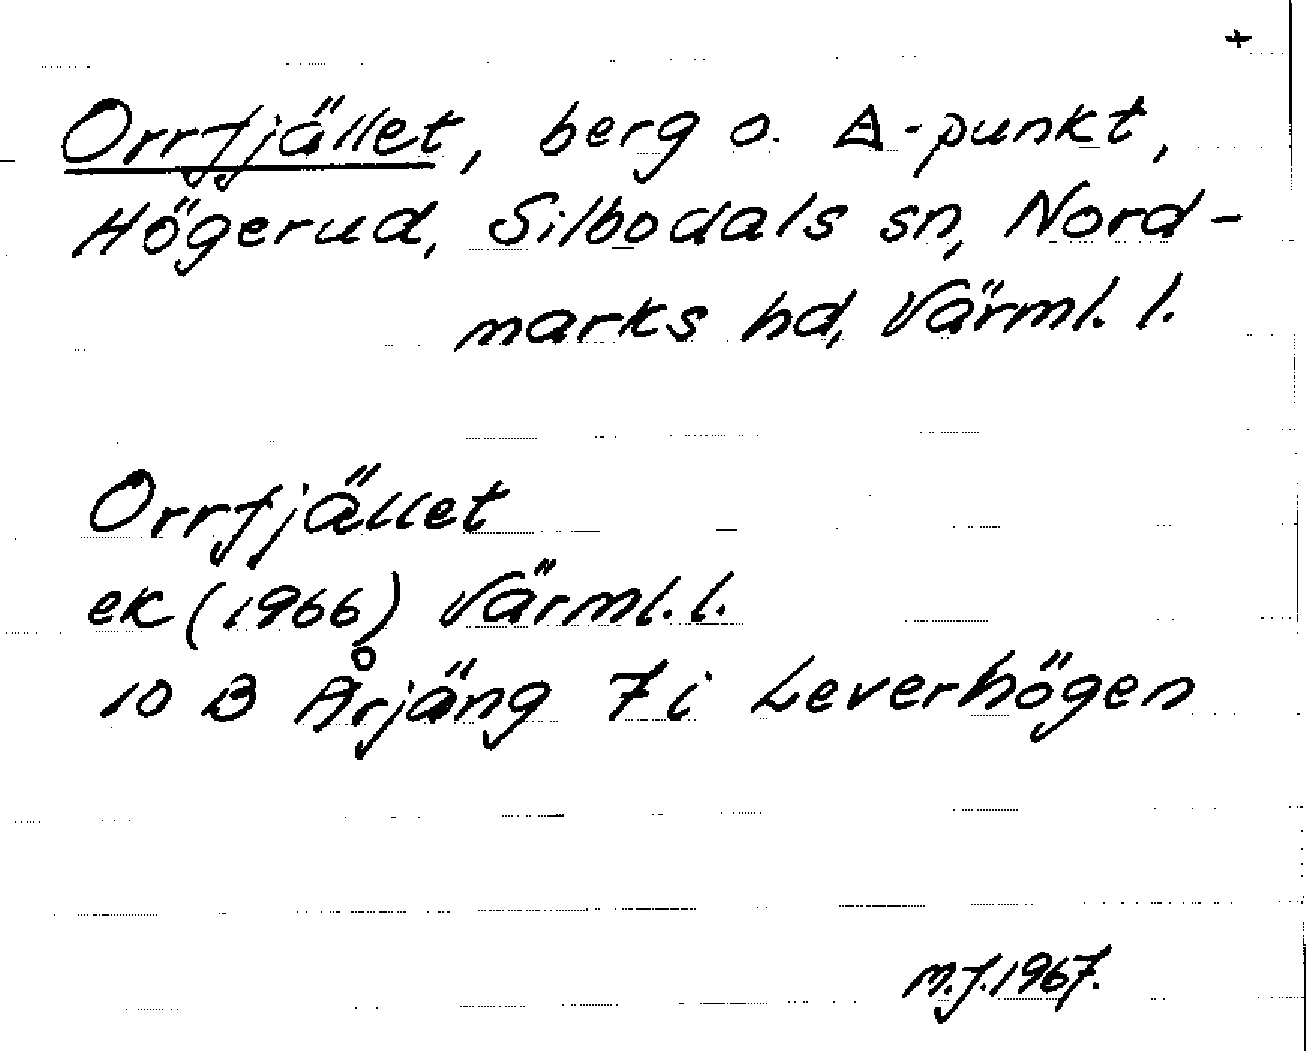 +
Orrfjället, berg o. Δ-punkt,
Högerud, Silbodals sn, Nord-
marks hd, Värml. l.
Orrfjället
ek (1966) Värml. l.
10 B Årjäng 7 i Leverhögen
M.J. 1967.